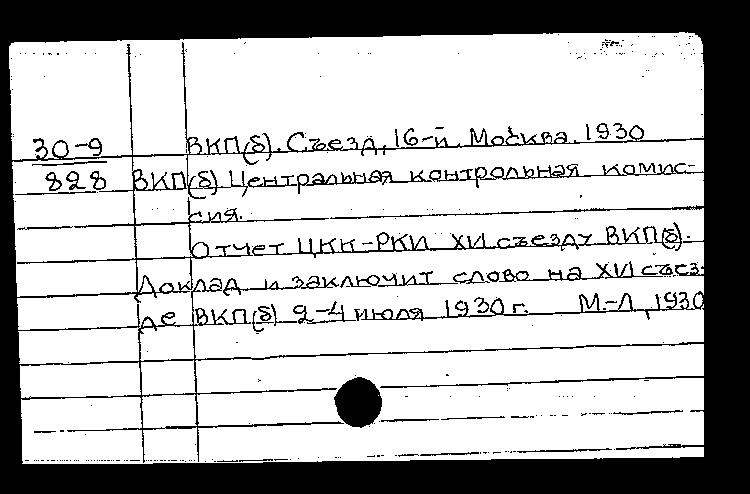 30-9 ВКП(б). Съезд, 16-й. Москва. 1930
828 ВКП(б) Центральная контрольная комис-
сия.
Отчет ЦКК-РКИ XVI съезду ВКП(б).
Доклад и заключит слово на XVI съез-
де ВКП(б) 2-4 июля 1930 г. М.-Л, 1930